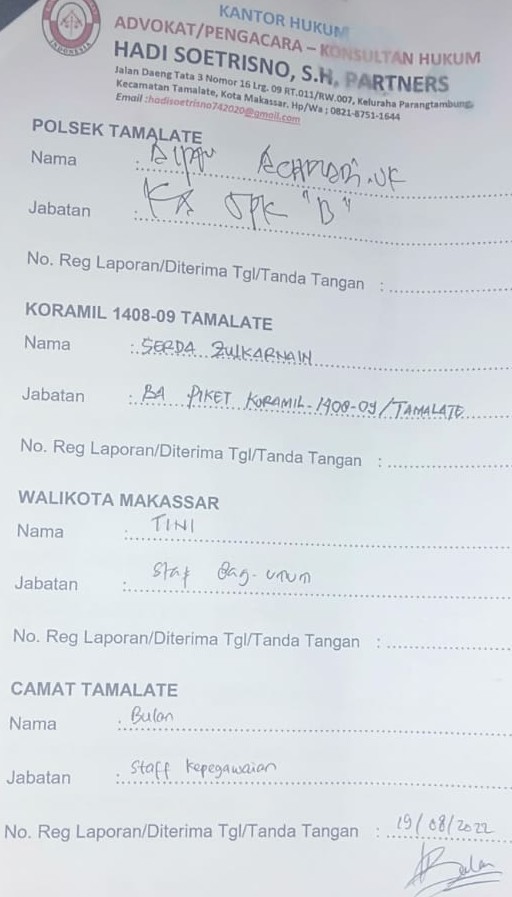 INDONESIA
KANTOR HUKUM
ADVOKAT/PENGACARA – KONSULTAN HUKUM
HADI SOETRISNO, S.H, PARTNERS
Jalan Daeng Tata 3 Nomor 16 Lrg. 09 RT.011/RW.007, Keluraha Parangtambung,
Kecamatan Tamalate, Kota Makassar. Hp/Wa ; 0821-8751-1644
Email :hadisoetrisno742020@gmail.com
POLSEK TAMALATE
Nama :
Jabatan : KA SPK "B"
No. Reg Laporan/Diterima Tgl/Tanda Tangan :
KORAMIL 1408-09 TAMALATE
Nama : SERDA ZULKARNAIN
Jabatan : BA PIKET KORAMIL-1408-09/TAMALATE
No. Reg Laporan/Diterima Tgl/Tanda Tangan :
WALIKOTA MAKASSAR
Nama : TINI
Jabatan : Staf Bag-umum
No. Reg Laporan/Diterima Tgl/Tanda Tangan :
CAMAT TAMALATE
Nama : Bulan
Jabatan : Staff Kepegawaian
No. Reg Laporan/Diterima Tgl/Tanda Tangan : 19/08/2022
Bulan